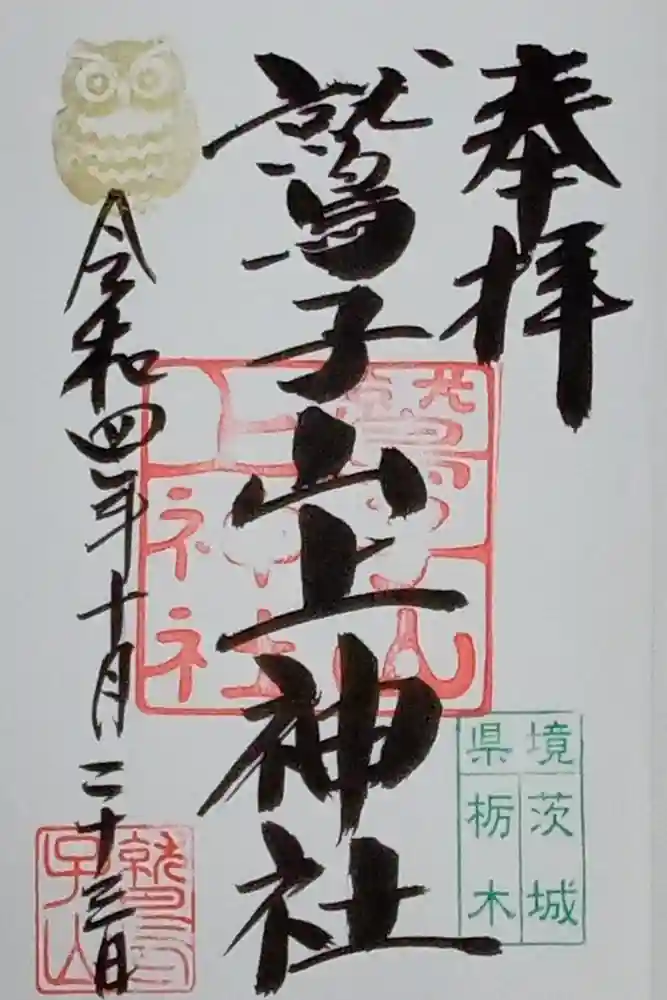 奉拝
鷲子山上神社
令和四年十月二十三日
鷲子山上神社
境
県
茨城
栃木
鷲子山